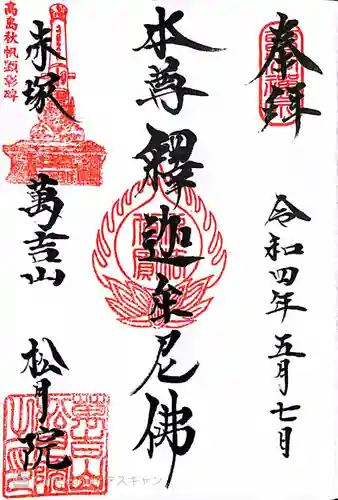 奉拝
令和四年五月七日
本尊釋迦牟尼佛
高島秋帆顕彰碑
赤塚
萬吉山
松月院